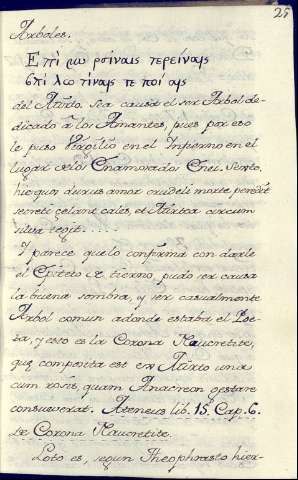 25
Arboles.
Επὶ μω ρσίναις τερείναις
ϛπὶ λω τίναις τε ποί αις
del Mirto. sea causa el ser Arbol de-
dicado â los Amantes, pues por eso
le puso Vergilio en el Infierno en el
lugar de los Enamorados Enei. Sexto,
hic quos durus amor crudeli morte peredit
secreti celant cales, et Mirtea circum
silva tegit.....
Y parece que lo confirma con darle
el Epiteto de tierno, pudo ser causa
la buena sombra, y ser casualmente
Arbol comun adonde estaba el Poe-
ta, y esto es la Corona Naucretite,
que composita est ex Mirto una
cum rosis, quam Anacreon gestare
consueverat. Ateneus lib. 15. Cap. 6.
de Corona Naucretite.
Loto es, segun Theophrasto hier-